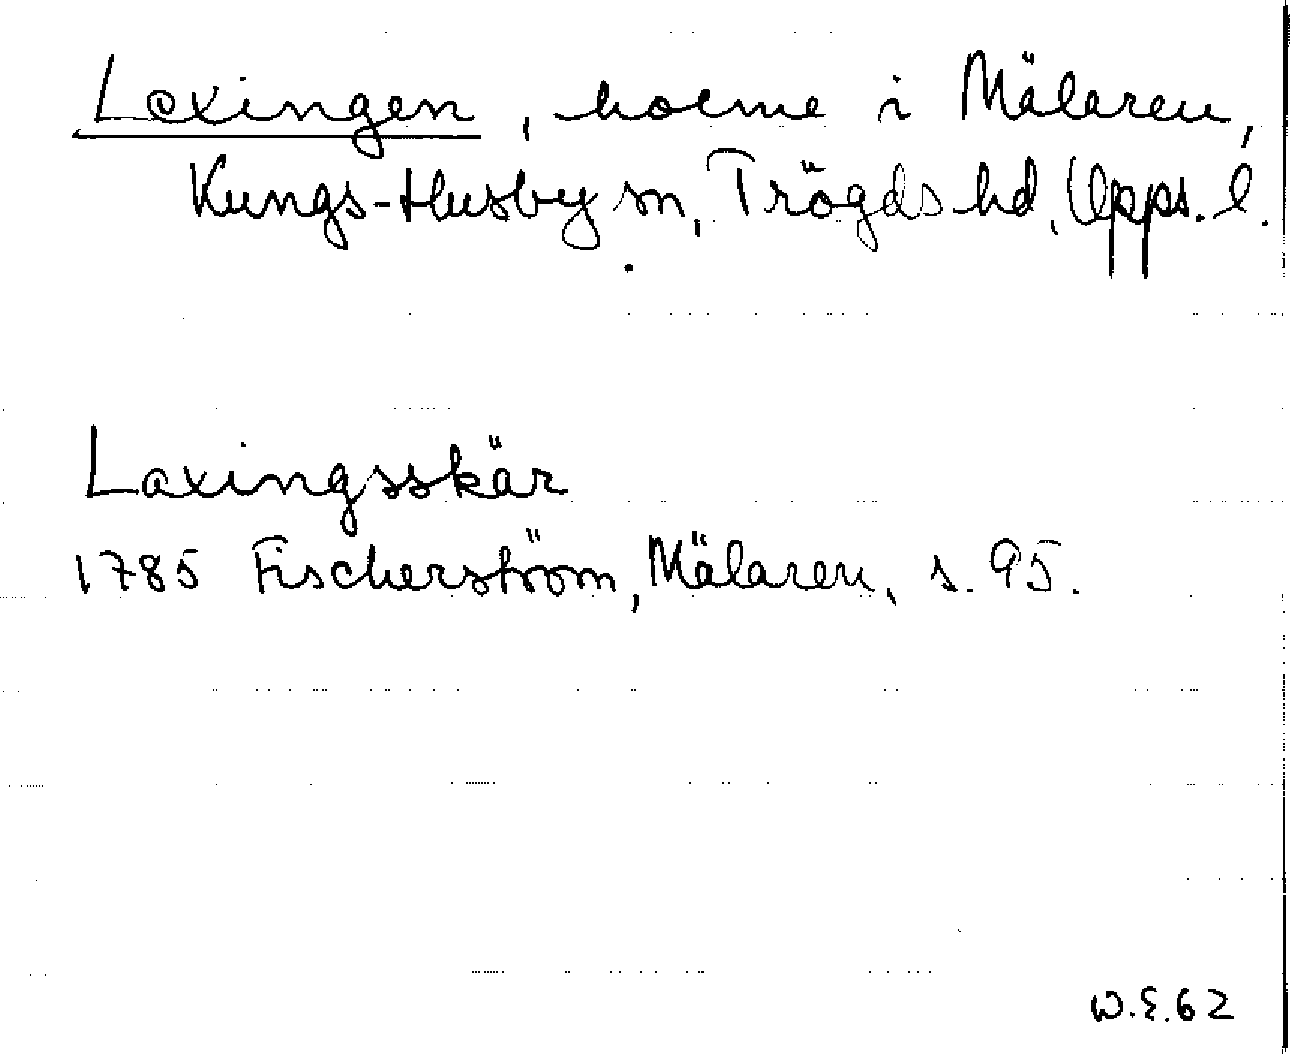 Laxingen, holme i Mälaren,
Kungs-Husby sn, Trögds hd, Upps. l.
Laxingsskär
1785 Fischerström, Mälaren, s. 95.
W.E.62